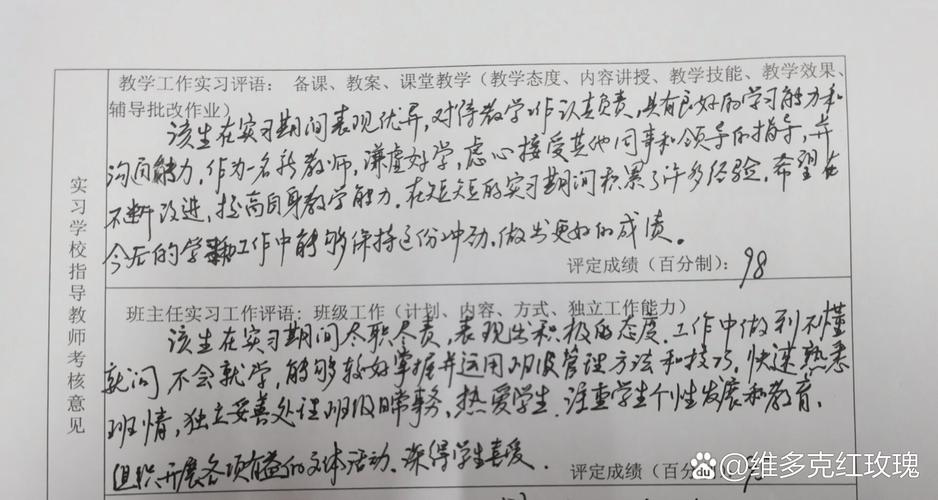 教学工作实习评语： 备课、教案、课堂教学（教学态度、内容讲授、教学技能、教学效果、
辅导批改作业）
该生在实习期间表现优异，对待教学工作认真负责，具有良好的学习能力和
沟通能力，作为一名新教师，谦虚好学，虚心接受其他同事和领导的指导，并
不断改进，提高自身教学能力。在短短的实习期间积累了许多经验。希望在
今后的学和工作中能够保持这份冲劲，做出更好的成绩。
评定成绩（百分制）：98
实习学校指导教师考核意见
班主任实习工作评语：班级工作（计划、内容、方式、独立工作能力）
该生在实习期间尽职尽责，表现出积极的态度，工作中做到不懂
就问 不会就学，能够较好掌握并运用班级管理方法和技巧，快速熟悉
班情，独立妥善处理班级日常事务，热爱学生，注重学生个性发展和教育，
组织开展各项有益的文体活动，深得学生喜爱．
评定成绩（百分制）
Baidu @维多克红玫瑰